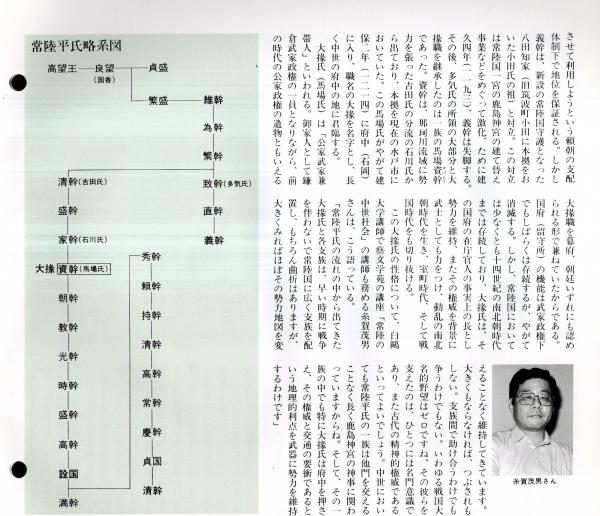 させて利用しようという頼朝の支配
体制下で地位を保証される。しかし
義幹は、新設の常陸国守護となった
八田知家（旧筑波町小田に本拠をお
いた小田氏の祖）と対立。この対立
は常陸国一宮の鹿島神宮の建て替え
事業などをめぐって激化。ために建
久四年（一一九三）、義幹は失脚する。
その後、多気氏の所領の大部分と大
掾職を継承したのは一族の馬場資幹
であった。資幹は、那珂川流域に勢
力を張った吉田氏の分流の石川氏か
ら出ており、本拠を現在の水戸市に
おいていた。この馬場氏がやがて建
保二年（一二一四）に府中（石岡）
に入り、職名の大掾を名字とし、長
く中世の府中の地に君臨する。
大掾氏（馬場氏）は「公家武家兼
帯人」といわれる。御家人として鎌
倉武家政権の一員となりながら、前
の時代の公家政権の遺物ともいえる
大掾職を幕府、朝廷いずれにも認め
られる形で兼ねていたからである。
国府（留守所）の機能は武家政権下
でもしばらくは存続するが、やがて
消滅する。しかし、常陸国において
は少なくとも十四世紀の南北朝時代
までは存続しており、大掾氏は、そ
の国府の在庁官人の事実上の長として
勢力を維持、またその権威を背景に
武士としても力をつけ、動乱の南北
朝時代を生き、室町時代、そして戦
国時代をも切り抜ける。
この大掾氏の性格について、白鷗
大学講師で藝文学苑の講座「常陸の
中世社会」の講師も務める糸賀茂男
さんは、こう語っている。
「常陸平氏の流れの中から出てきた
大掾氏と各支族は、早い時期に戦争
を伴わないで常陸国に広く支族を配
置し、もちろん曲折はありますが、
大きくみればほぼその勢力地図を変
えることなく維持してきています。
大きくもならなければ、つぶされも
しない。支族間で助け合うわけでも
争うわけでもない。いわゆる戦国大
名的野望はゼロですね。その彼らを
支えたのは、ひとつには名門意識で
あり、また古代の精神的権威である
といってよいでしょう。中世におい
ても常陸平氏の一族は他門を交える
ことなく長く鹿島神宮の神事に関わ
っていますからね。そして、その一
族の中でも特に大掾氏は府中を押さ
え、その権威と交通の要衝であると
いう地理的利点を武器に勢力を維持
するわけです」
糸賀茂男さん
常陸平氏略系図
高望王 良望 貞盛
（国香）
繁盛 維幹
為幹
繁幹
清幹（吉田氏） 致幹（多気氏）
盛幹 直幹
家幹（石川氏） 義幹
大掾 資幹（馬場氏） 秀幹
朝幹 頼幹
教幹 持幹
光幹 清幹
時幹 高幹
盛幹 常幹
高幹 慶幹
詮国 貞国
満幹 清幹